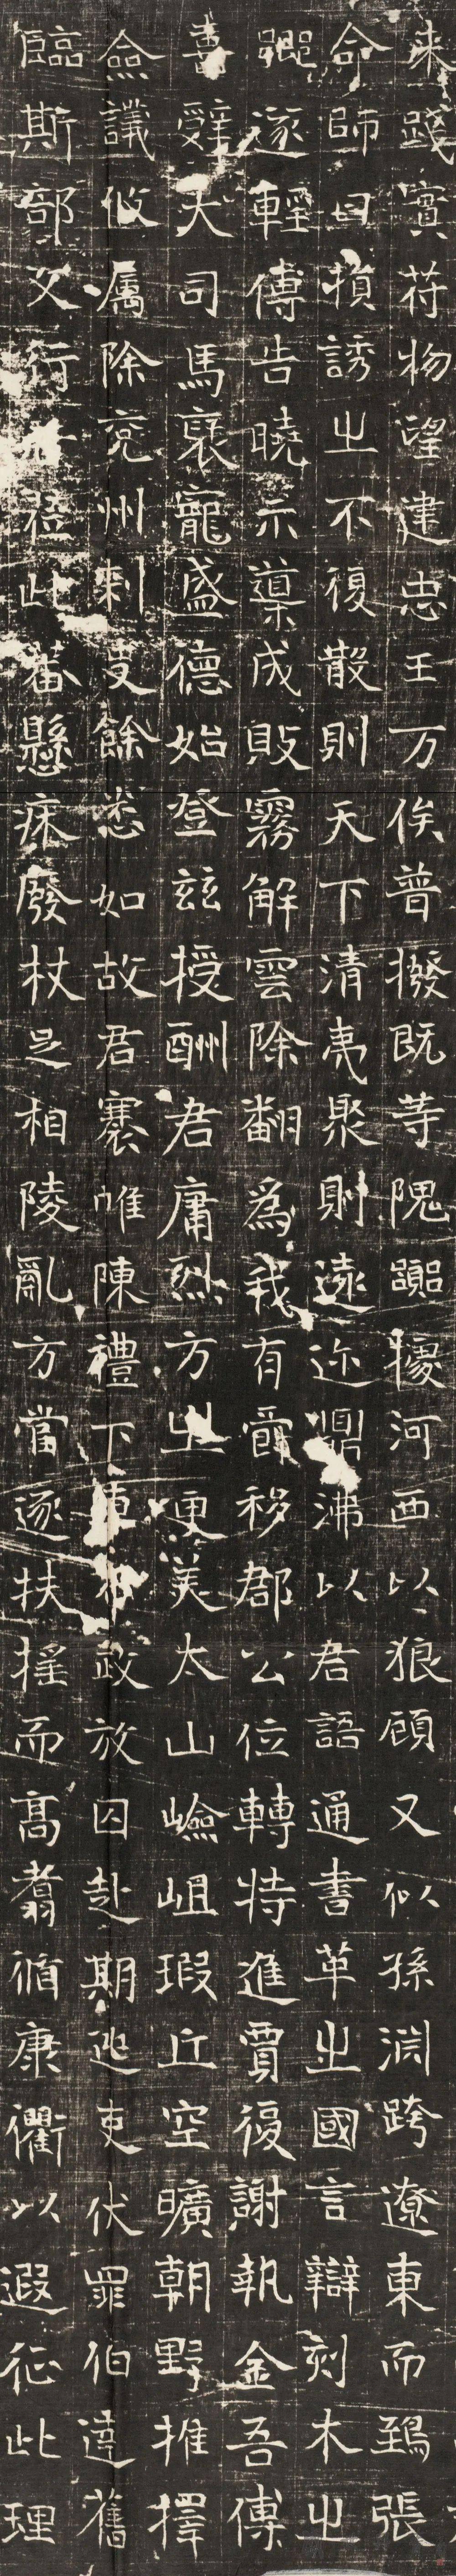 来践實苻物望建忠王万俟普撥既䓁隗嚻擾河西以狼顧又似孫渊跨遼東而鵄張
命師曰損誘之不復散則天下清夷聚則遠迩鼎沸以君語通書革之國言辯刻木之
遂輕傅告曉示䆃成敗霧解雲除翻為我有爵移郡公位轉特進賈復謝執金吾傅
喜辭大司馬襃寵盛德始登玆授酬君庸烈方之更美太山嶮岨瑕丘空曠朝野推擇
僉議攸属除兖州刺史餘悉如故君褰唯陳禮下車布政放囚赴期迯吏伏罪伯達舊
臨斯部父行此蕃懸床廢杖足相陵亂方當逐扶摇而高翥循康衢以遐征此理